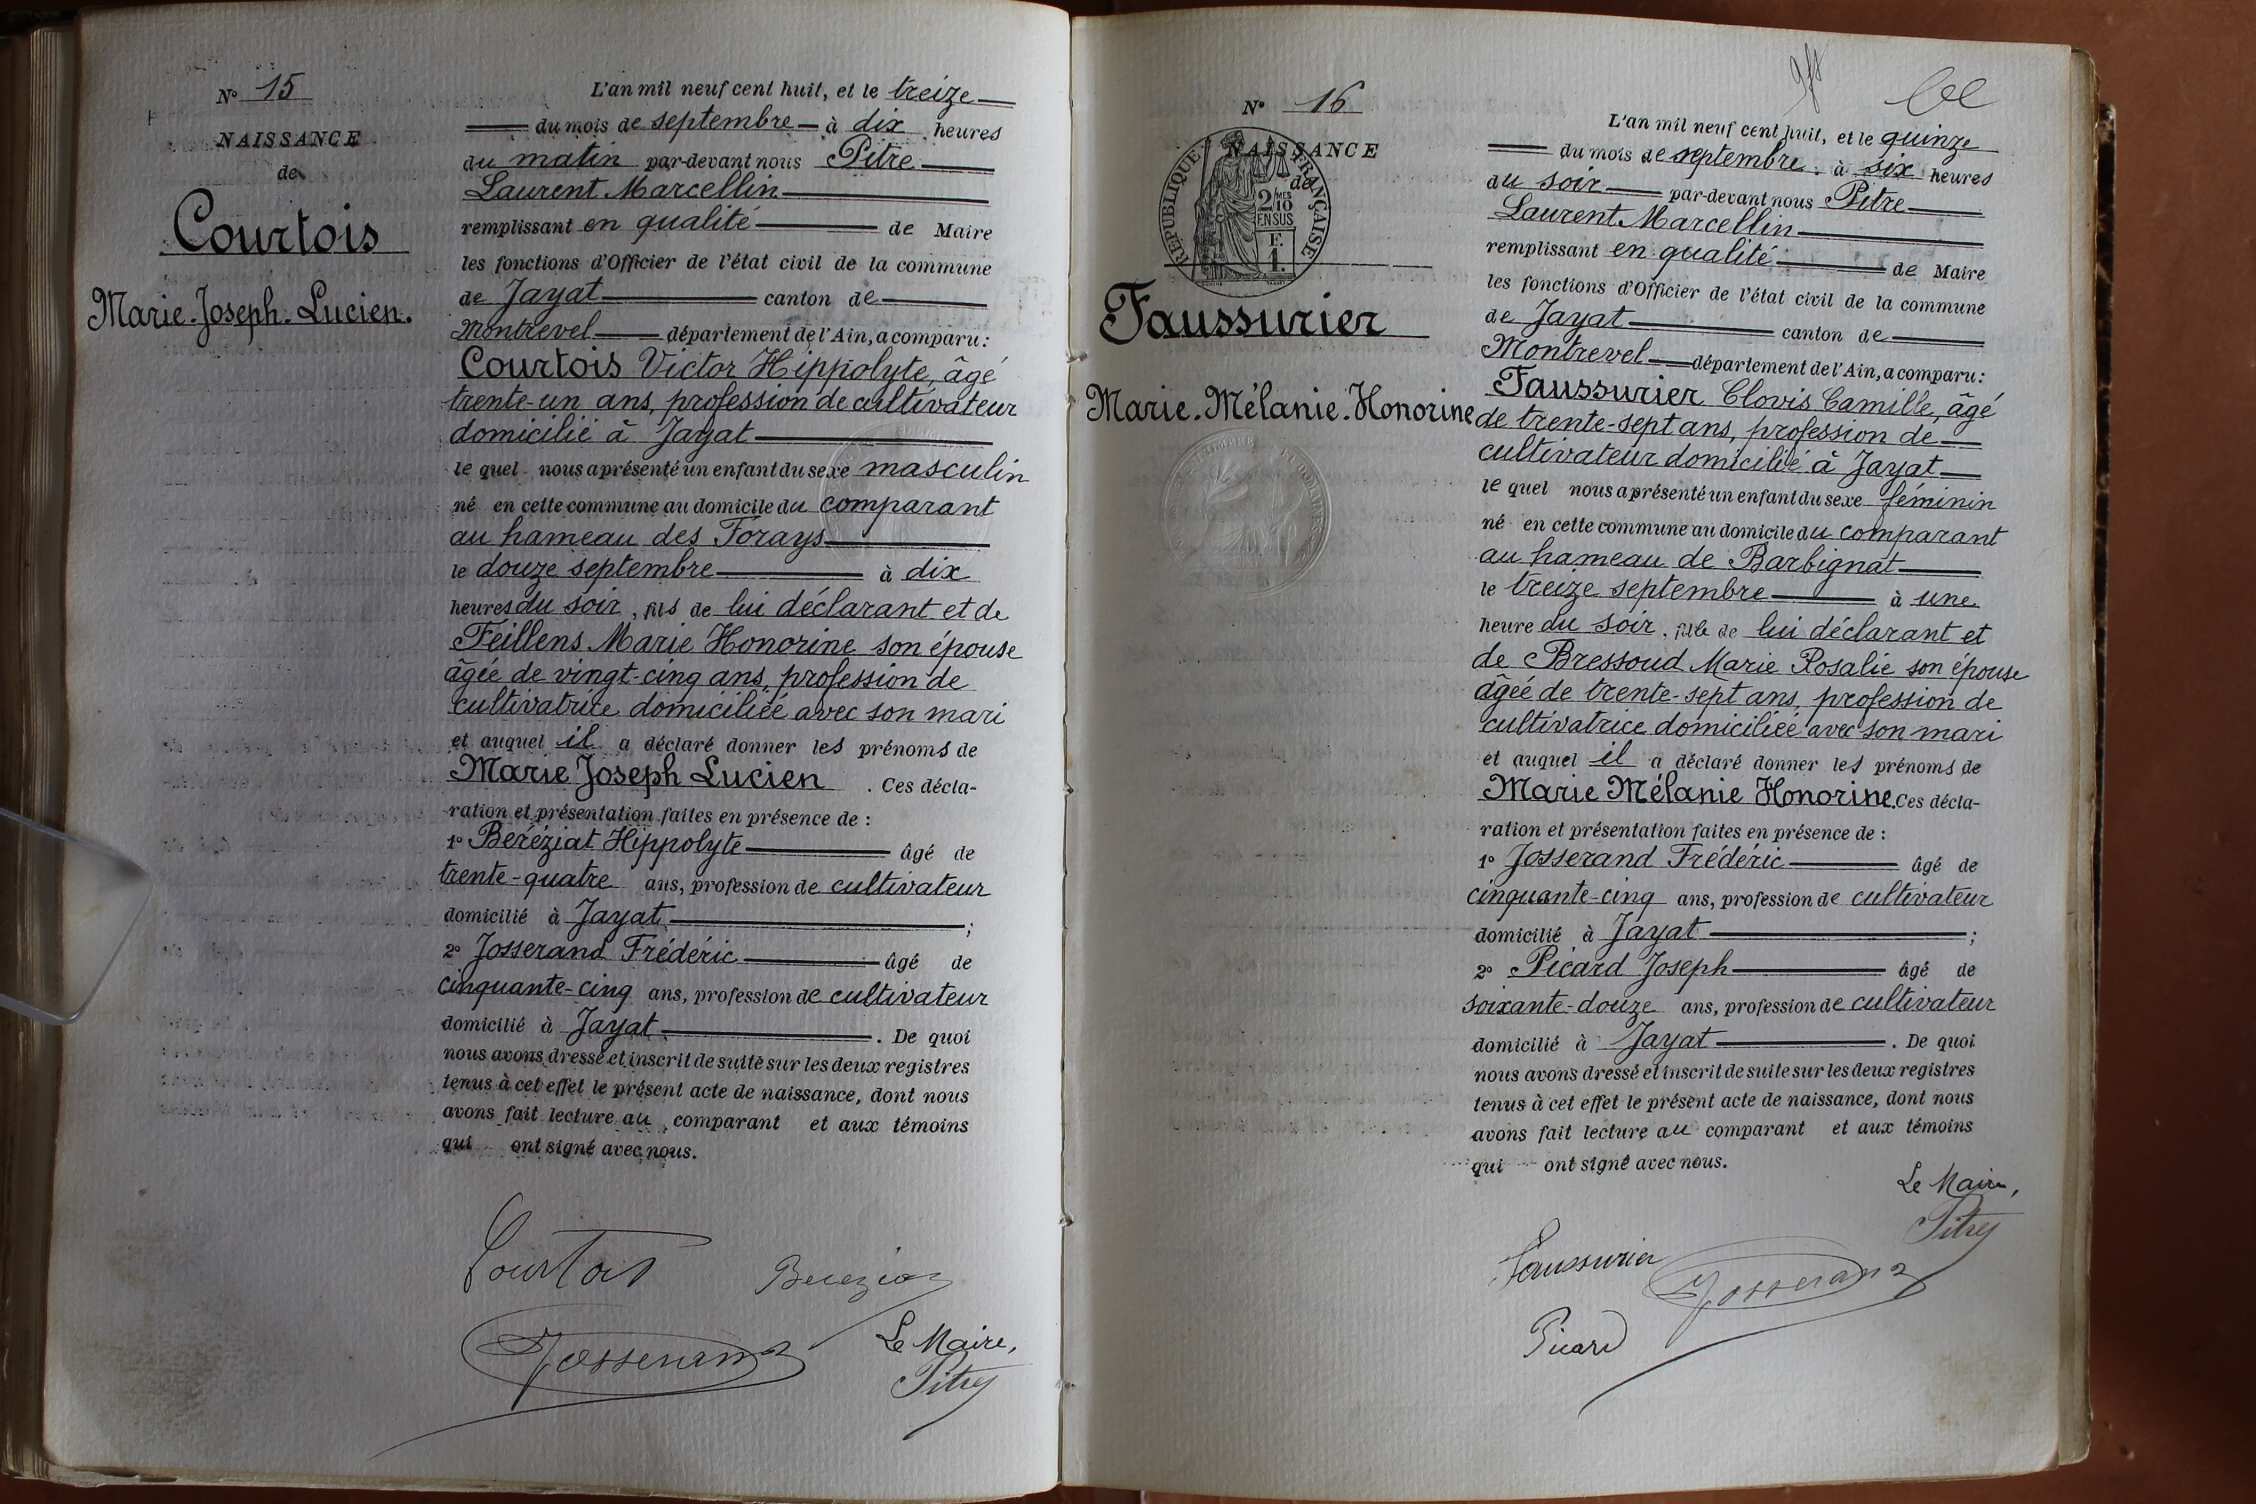 N° 15
NAISSANCE
de
Courtois
Marie-Joseph-Lucien.
L'an mil neuf cent huit, et le treize
du mois de septembre à dix heures
du matin par-devant nous Pitre
Laurent Marcellin
remplissant en qualité de Maire
les fonctions d'Officier de l'état civil de la commune
de Jayat canton de
Montrevel département de l'Ain, a comparu:
Courtois Victor Hippolyte, âgé
trente-un ans, profession de cultivateur
domicilié à Jayat
le quel nous a présenté un enfant du sexe masculin
né en cette commune au domicile du comparant
au hameau des Forays
le douze septembre à dix
heures du soir, fils de lui déclarant et de
Feillens Marie Honorine son épouse
âgée de vingt-cinq ans, profession de
cultivatrice domiciliée avec son mari
et auquel il a déclaré donner les prénoms de
Marie Joseph Lucien . Ces décla-
ration et présentation faites en présence de :
1° Beréziat Hippolyte âgé de
trente-quatre ans, profession de cultivateur
domicilié à Jayat ;
2° Josserand Frédéric âgé de
cinquante-cinq ans, profession de cultivateur
domicilié à Jayat . De quoi
nous avons dressé et inscrit de suite sur les deux registres
tenus à cet effet le présent acte de naissance, dont nous
avons fait lecture au comparant et aux témoins
qui ont signé avec nous.
Courtois Bereziat
Josserand Le Maire,
Pitre
N° 16
NAISSANCE
de
REPUBLIQUE FRANÇAISE
2/10 MES
EN SUS
F.
1.
Faussurier
Marie-Mélanie-Honorine
L'an mil neuf cent huit, et le quinze
du mois de septembre à six heures
du soir par-devant nous Pitre
Laurent Marcellin
remplissant en qualité de Maire
les fonctions d'Officier de l'état civil de la commune
de Jayat canton de
Montrevel département de l'Ain, a comparu:
Faussurier Clovis Camille, âgé
de trente-sept ans, profession de
cultivateur domicilié à Jayat
le quel nous a présenté un enfant du sexe féminin
né en cette commune au domicile du comparant
au hameau de Barbignat
le treize septembre à une
heure du soir, fille de lui déclarant et
de Bressoud Marie Rosalie son épouse
âgée de trente-sept ans, profession de
cultivatrice domiciliée avec son mari
et auquel il a déclaré donner les prénoms de
Marie Mélanie Honorine. Ces décla-
ration et présentation faites en présence de :
1° Josserand Frédéric âgé de
cinquante-cinq ans, profession de cultivateur
domicilié à Jayat ;
2° Picard Joseph âgé de
soixante-douze ans, profession de cultivateur
domicilié à Jayat . De quoi
nous avons dressé et inscrit de suite sur les deux registres
tenus à cet effet le présent acte de naissance, dont nous
avons fait lecture au comparant et aux témoins
qui ont signé avec nous.
Le Maire,
Pitre
Faussurier Josserand
Picard